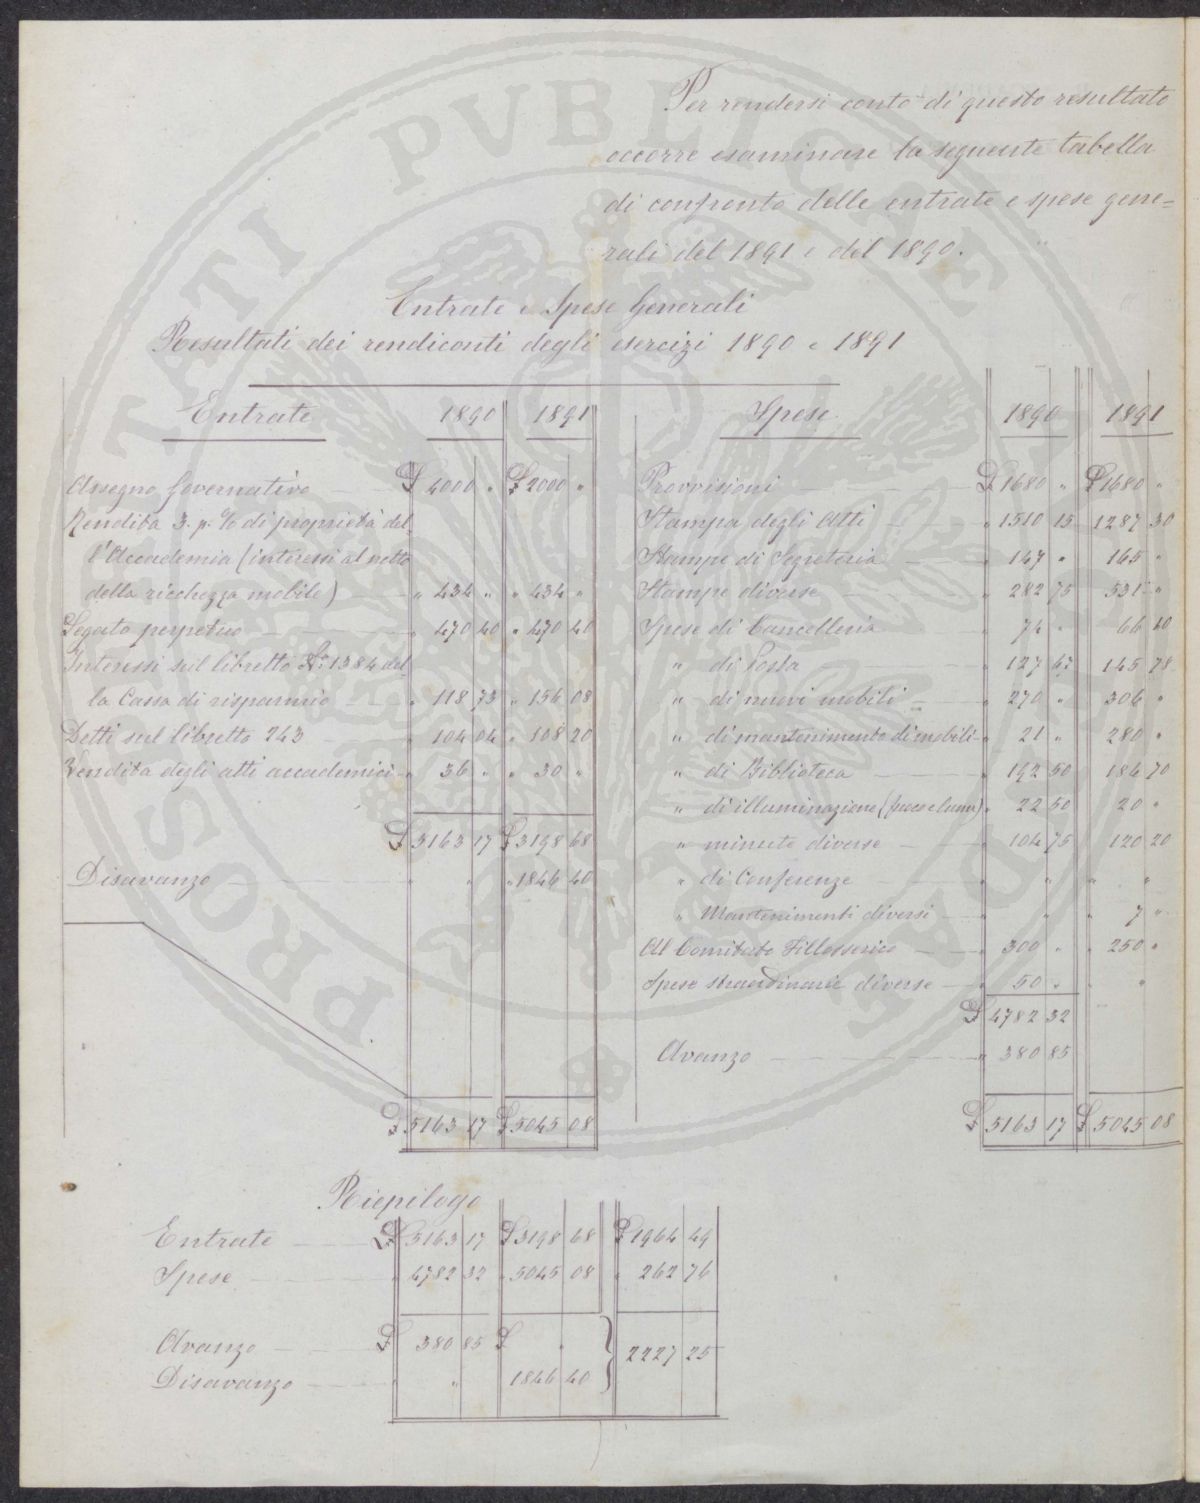 Per rendersi conto di questo resultato
occorre esaminare la seguente tabella
di confronto delle entrate e spese gene=
rali del 1891 e del 1890.
Entrate e Spese Generali
Resultati dei rendiconti degli esercizi 1890 e 1891
Entrate 1890 1891
Assegno Governativo £ 4000 " £ 2000 "
Rendita 3. p. % di proprietà del
l'Accademia (interessi al netto
della ricchezza mobile) " 434 " " 434 "
Legato perpetuo " 470 40 " 470 40
Interessi sul libretto N.º 1384 del
la Cassa di risparmio " 118 73 " 156 08
Detti sul libretto 243 " 104 04 " 108 20
Vendita degli atti accademici " 36 " " 30 "
£ 5163 17 £ 3198 68
Disavanzo " " " 1846 40
£ 5163 17 £ 5045 08
Spese 1890 1891
Provvisioni £ 1680 " £ 1680 "
Stampa degli Atti " 1510 15 1287 30
Stampe di Segreteria " 147 " 165 "
Stampe diverse " 282 75 531 "
Spese di Cancelleria " 74 " 66 40
" di Posta " 127 67 145 78
" di nuovi mobili " 270 " 306 "
" di mantenimento di mobili " 21 " 280 "
" di Biblioteca " 192 50 186 70
" di illuminazione (fuoco e lume) " 22 50 20 "
" minute diverse " 104 75 120 20
" di Conferenze " " " "
" Mantenimenti diversi " " " 7 "
Al Comitato Fillosserico " 300 " " 250 "
Spese straordinarie diverse " 50 " " "
£ 4782 32
Avanzo " 380 85
£ 5163 17 £ 5045 08
Riepilogo
Entrate £ 5163 17 £ 3198 68 £ 1964 49
Spese " 4782 32 " 5045 08 " 262 76
Avanzo £ 380 85 £ " 2227 25
Disavanzo " " 1846 40
PROSPERITATI PUBLICAE AUGENDAE